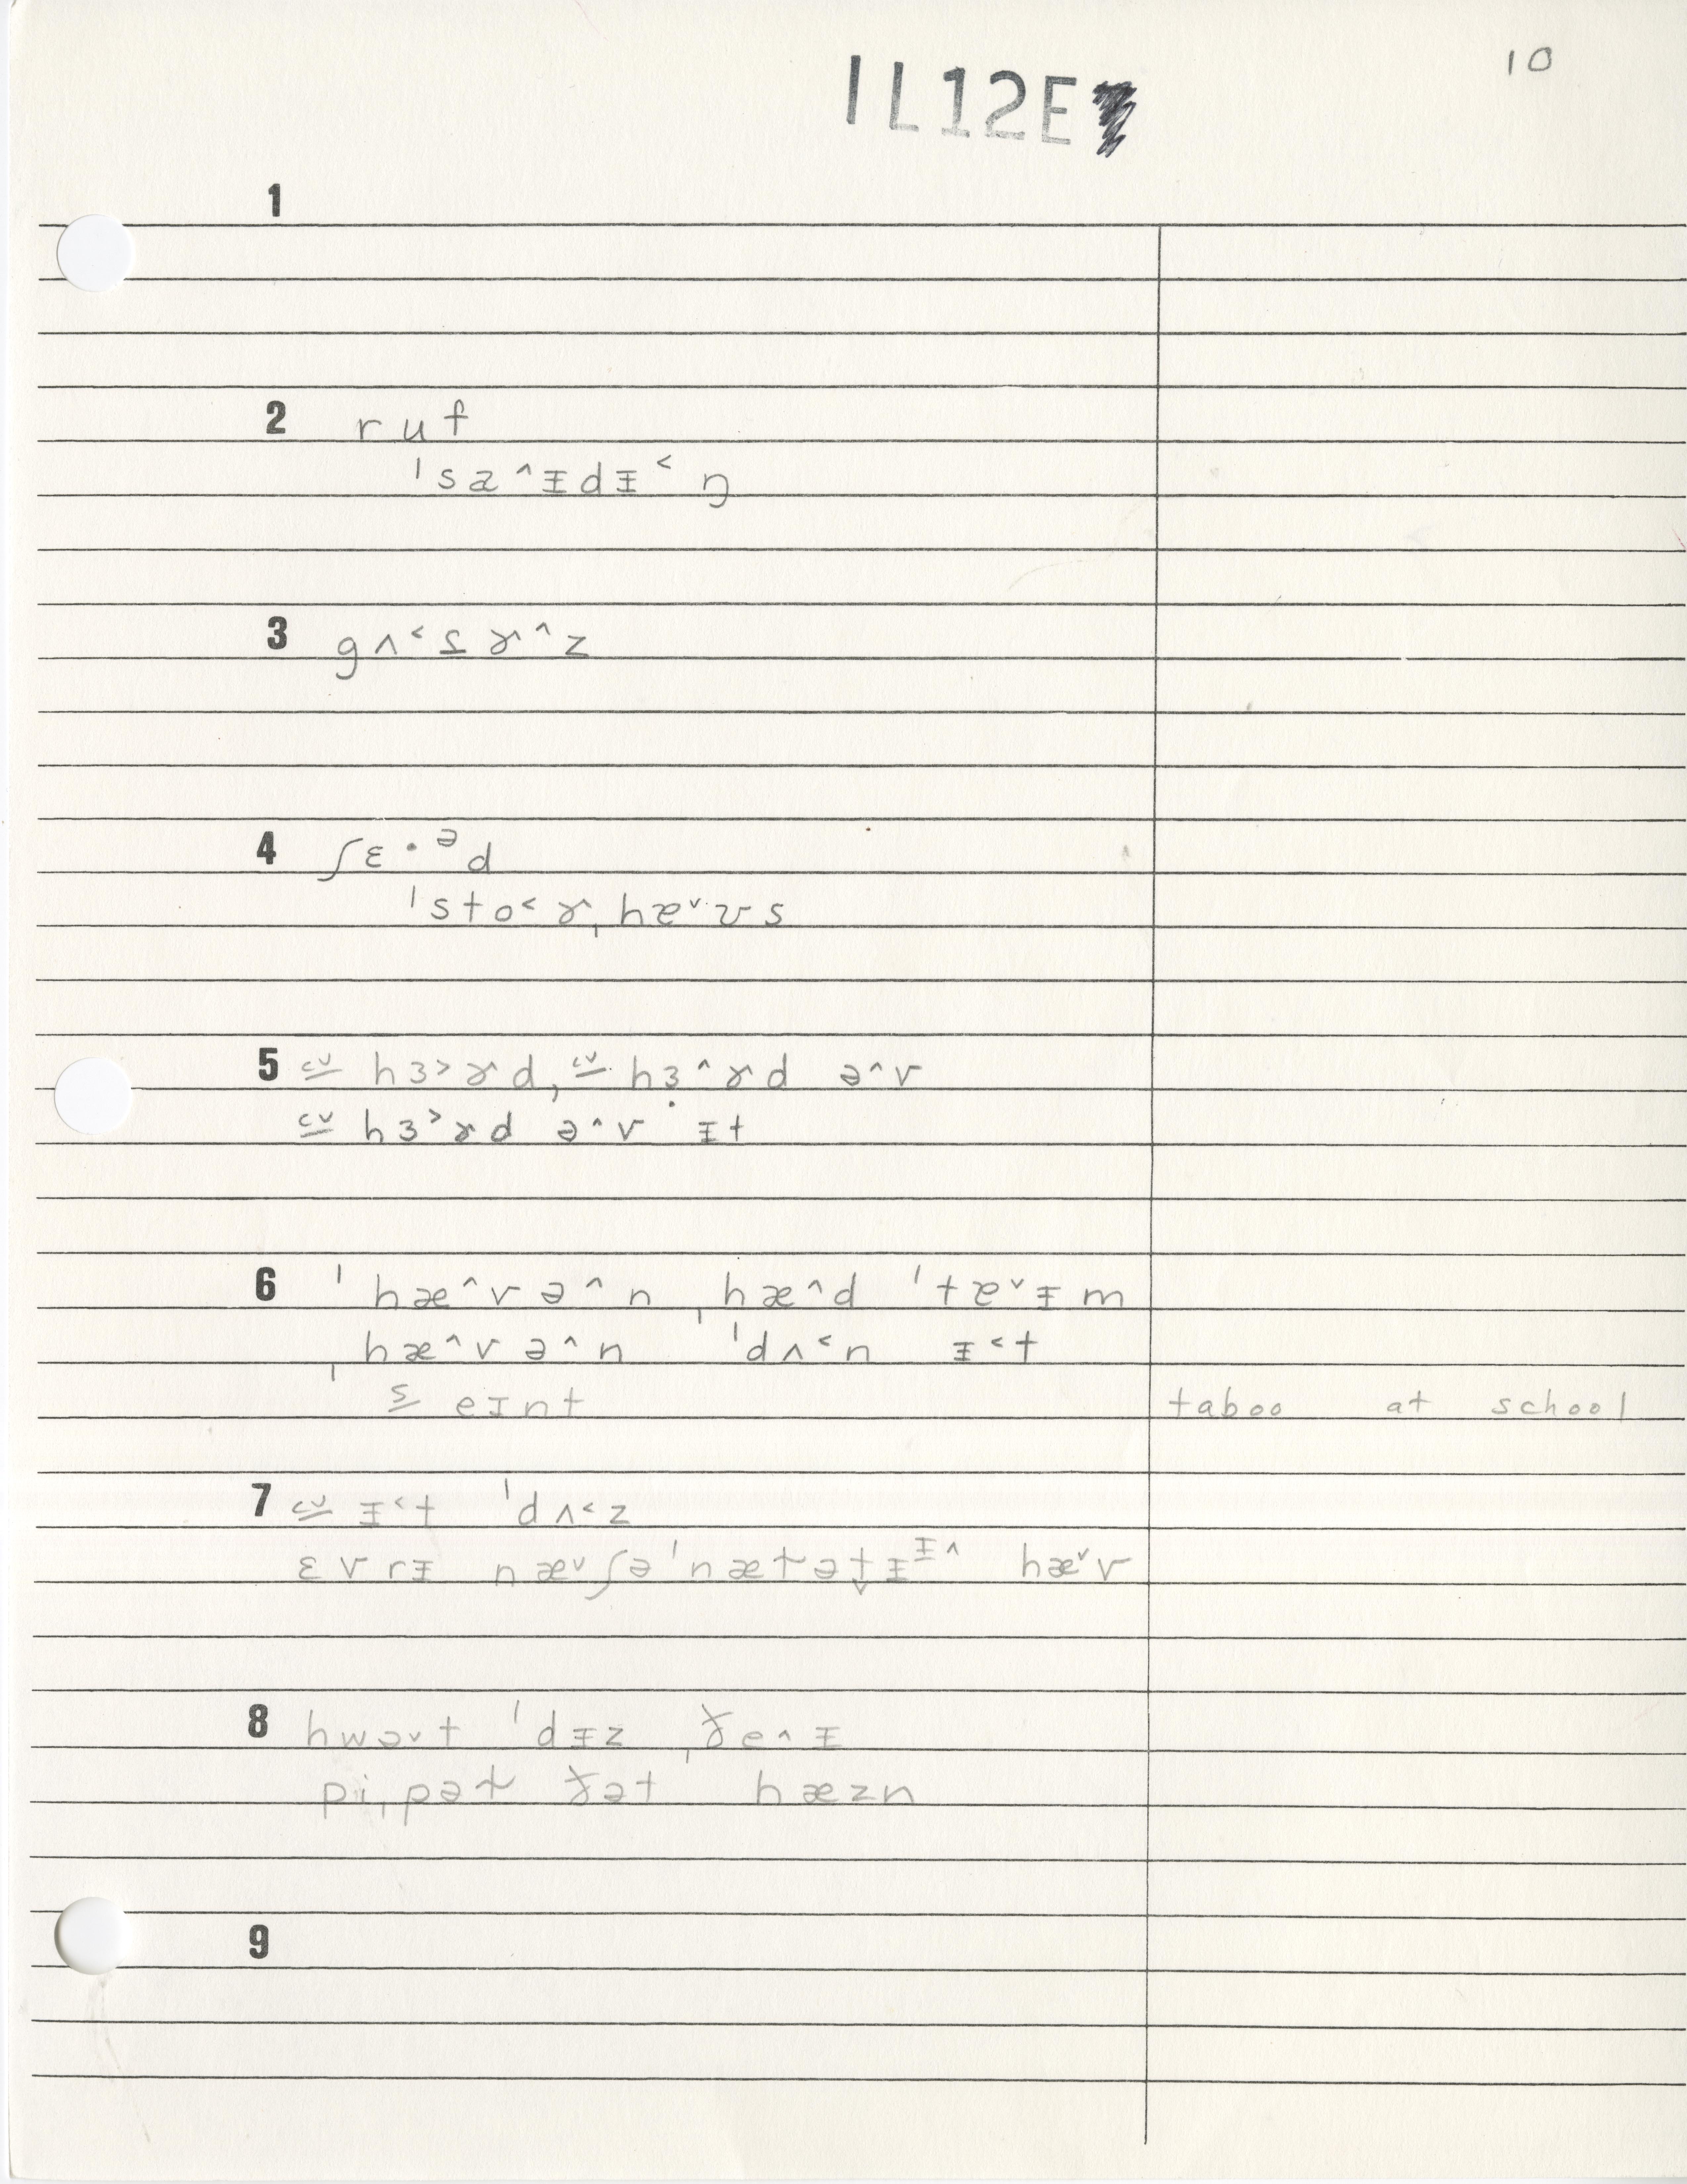 10
1L12E
1
2 ruf
ˈsa˄ɪdɪ˂ŋ
3 gʌ˂ṯɚ˄z
4 ʃɛ·ᵊd
ˈsto˂ɚˌhæ˅ʊs
5 cv hɜ˃ɚd, cv hɜ˄ɚd ə˄v
cv hɜ˃ɚd ə˄v ɪt
6 ˈhæ˄və˄n ˌhæ˄d ˈtæ˅ɪm
ˌhæ˄və˄n ˈdʌ˂n ɪ˂t
s eɪnt taboo at school
7 cv ɪ˂t ˈdʌ˂z
ɛvrɪ næ˅ʃəˈnætət̬ɪᶦ˄ hæ˅v
8 hwə˅t ˈdɪz ˌðe˄ɪ
piˌpət ðət hæzn
9